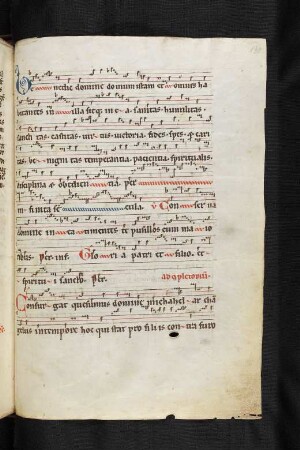 Benedic domine domum istam et omnes ha
bitantes in illa sitq3 in ea sanitas humilitas
sanctitas castitas virtus victoria fides spes & cari
tas benignitas temperantia patientia spiritualis
disciplina & obedientia per
infinita secula. V Conserva
domine in ea timentes te pusillos cum maio
ribus. Per inf. Gloria patri et filio et
spiritui sancto. Per.
Consurgat quesumus domine michahel archa
gelus in tempore hoc qui stat pro filiis